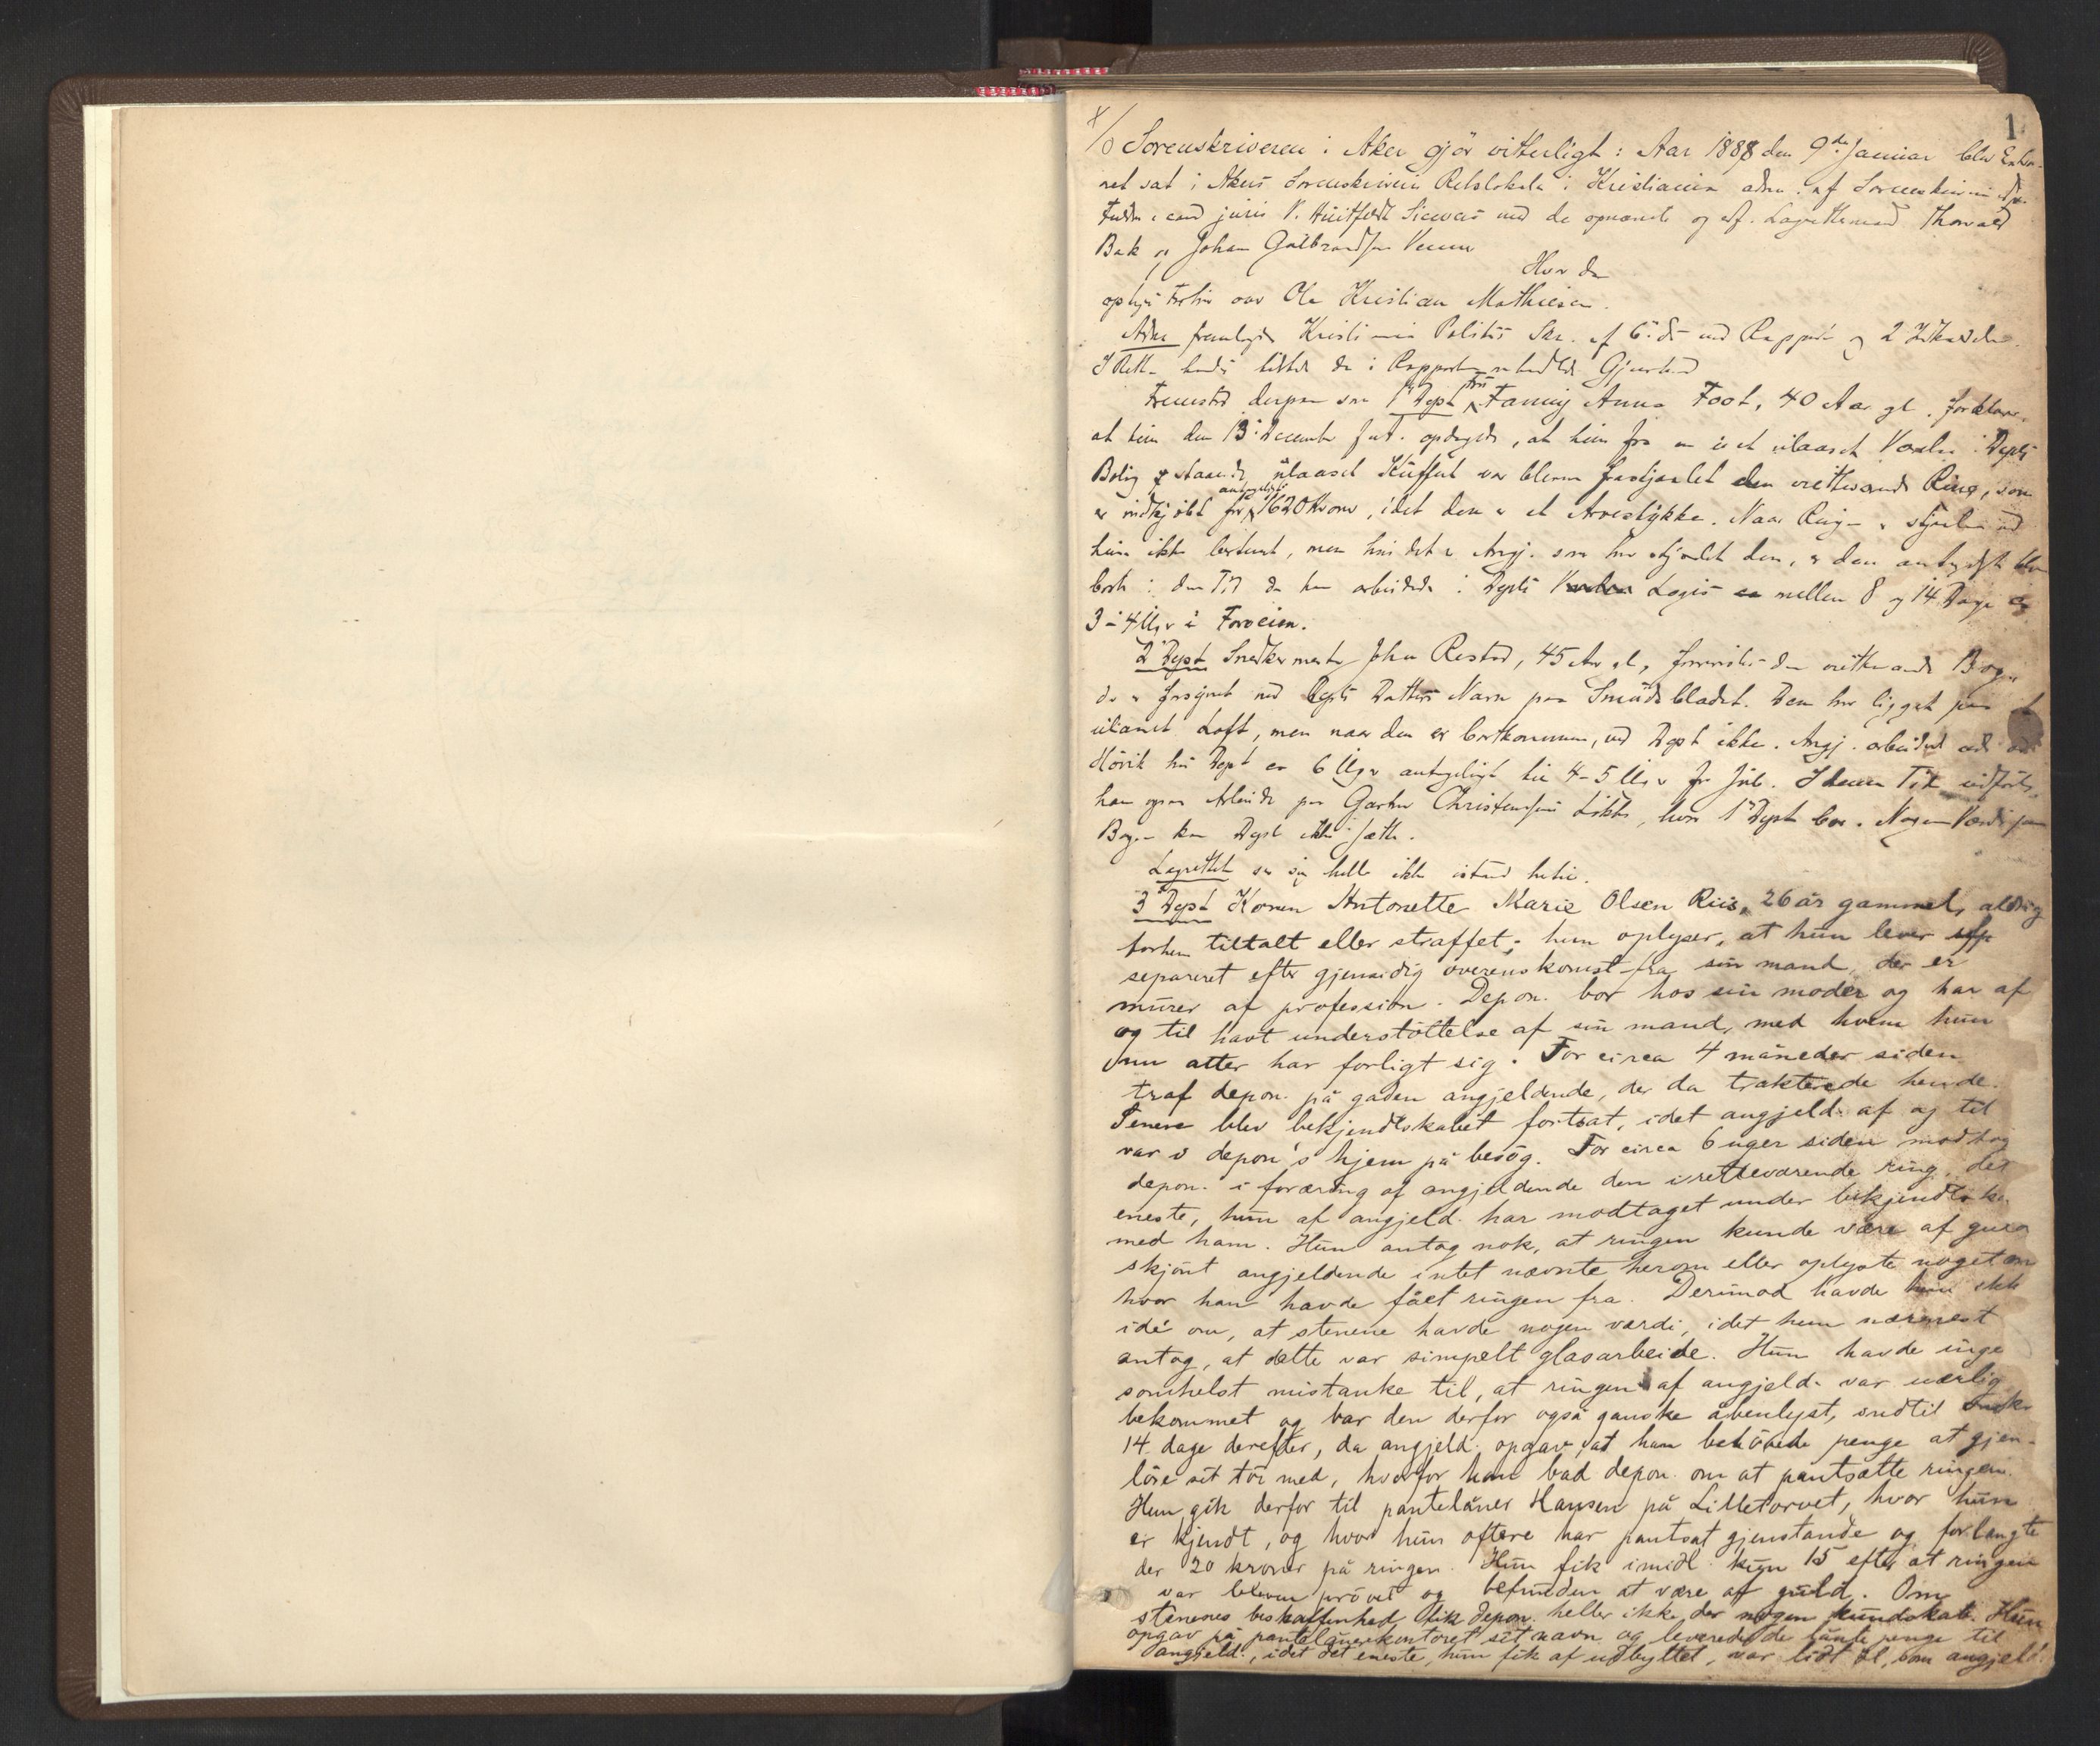 1
Sorenskriveren i Aker gjör vitterligt: Aar 1888 den 9de Januar blev Extra-
ret sat i Akers Sorenskriveri Retslokale i Kristiania adm. af Sorenskriverens
cand juris V. Huitfeldt Sievers med de opnævnte og edf. Lagrettemænd Thorvald
Bak og Johan Gulbrandsen
Hvor da
Forhör over Ole Kristian Mathiesen.
Adm fremlagde Kristiania Politis Skr. af 6. ds med Rapport og 2
I Retten tilstede de i Rapporten
Fremstod derpaa som 1ste Dept Fru Fanny Anna Foot, 40 Aar gl. forklarer,
at hun den 13. December opdagede, at hun fra en i et ulaaset Værelse i Depts
Bolig staaende ulaaset Kuffert var bleven frastjaalet den iretteværende Ring, som
er indkjöbt for antageligt 1620 Kroner, idet den er et Arvestykke. Naar Ringen er stjaalen ved
hun ikke bestemt, men hvis det er Angj. som har stjaalet den, er den antageligt blevet
borte i den Tid da han arbeidede i Depts Logis mellem 8 og 14 Dage
3 à 4 Uger i Forveien.
2 Dept Snedkermester John Restad, 45 Aar gl, den iretteværende Bog,
der er forsynet med Depts Datters Navn paa Smudsbladet. Den har ligget paa et
ulaaset Loft, men naar den er bortkommen, ved Dept ikke. Angj. arbeidede
Hövik hos Dept ca 6 Uger antageligt til 4-5 Uger för Jul. I denne Tid udförte
han ogsaa Arbeide paa Gartner Christensens Lökke, hvor 1ste Dept bor. Nogen Værdi paa
Bogen kan Dept ikke sætte.
Lagrettet ser sig heller ikke istand hertil.
3 Dept Konen Antonette Marie Olsen Riis, 26 år gammel, aldrig
forhen tiltalt eller straffet; hun oplyser, at hun lever
separeret efter gjensidig overenskomst fra sin mand, der er
murer af profession. Depon. bor hos sin moder og har af
og til havt understöttelse af sin mand, med hvem hun
nu atter har forligt sig. For circa 4 måneder siden
traf depon. på gaden angjeldende, der da trakterede hende.
Senere blev bekjendtskabet fortsat, idet angjeld. af og til
var i depon's hjem på besög. For circa 6 uger siden modtog
depon. i foræring af angjeldende den iretteværende ring, det
eneste, hun af angjeld. har modtaget under bekjendtska-
med ham. Hun antog nok, at ringen kunde være af guld
skjönt angjeldende intet nævnte herom eller oplyste noget om
hvor han havde fået ringen fra. Derimod havde hun ikke
idé om, at stenene havde nogen værdi, idet hun nærmest
antog, at dette var simpelt glasarbeide. Hun havde inge
somhelst mistanke til, at ringen af angjeld. var uærlig
bekommet og bar den derfor også ganske åbenlyst, indtil
14 dage derefter, da angjeld. opgav, at han behövede penge at gjen-
löse sit töi med, hvorfor han bad depon. om at pantsætte ringen.
Hun gik derfor til pantelåner Hansen på Lilletorvet, hvor hun
er kjendt, og hvor hun oftere har pantsat gjenstande og forlangte
der 20 kroner på ringen. Hun fik imidl. kun 15 efter at ringen
var bleven prövet og befunden at være af guld. Om
stenenes beskaffenhed fik depon. heller ikke der nogen kundskab. Hun
opgav på pantelånerkontoret sit navn og leverede de lånte penge til
angjeld., idet det eneste, hun fik af udbyttet, var lidt öl, som angjeld.